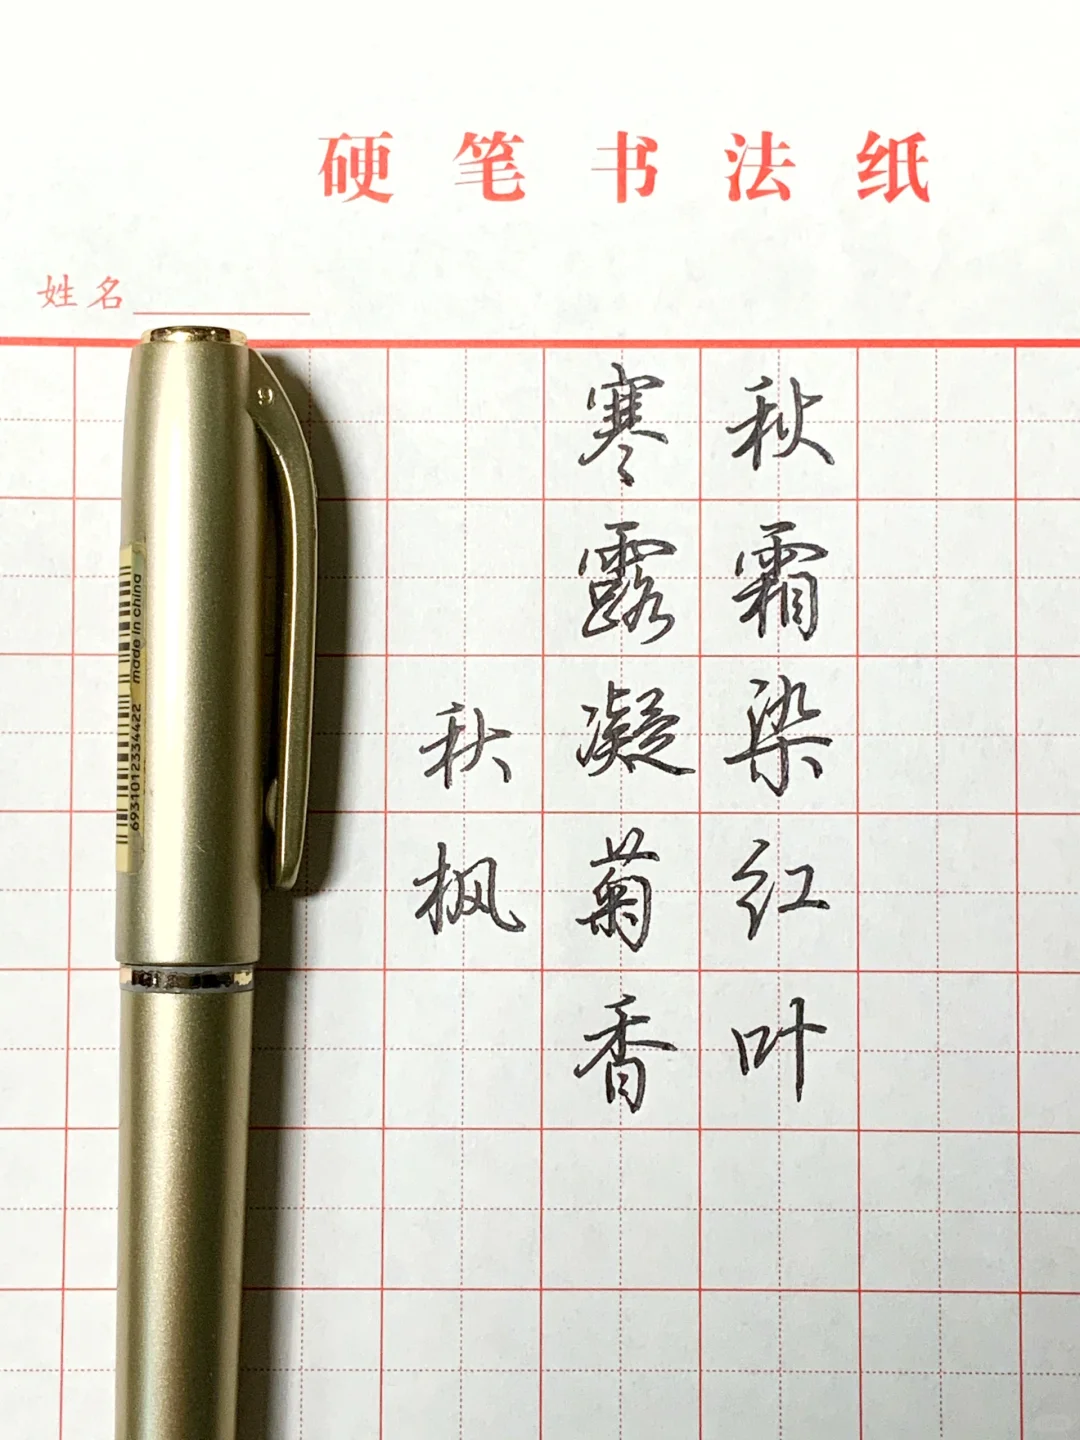 硬笔书法纸
姓名
秋霜染红叶
寒露凝菊香
秋枫
made in china
6931012334422
9